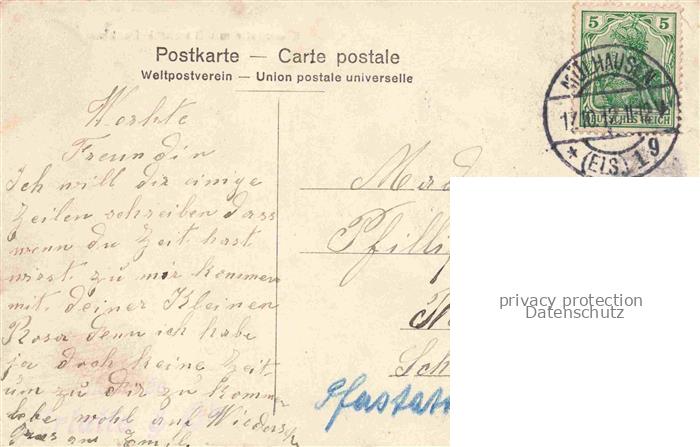 Postkarte — Carte postale
Weltpostverein — Union postale universelle
5 5
DEUTSCHES REICH
MÜLHAUSEN
17.10.12.11-12
* (ELS.) 1 g
Werhte
Freundin
Ich will dir einige
Zeilen schreiben dass
wenn du Zeit hast
wirst zu mir kommen
mit deiner Kleinen
Rosa denn ich habe
ja doch keine Zeit
um zu dir zu kommen
lebe wohl auf Wieders
Grus an Emil
Mad
Phillip
Sch
Pfastatt
privacy protection
Datenschutz